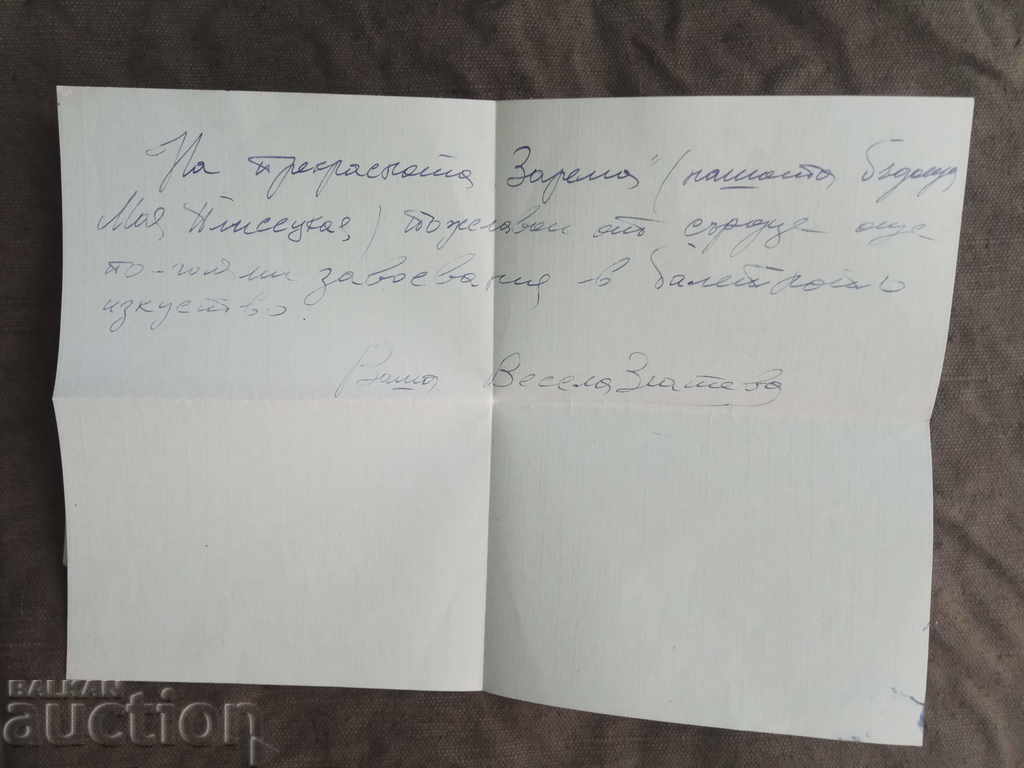 На прекрасната Зарема" (нашата бъдаща
Мая Плисецкая) пожелавам от сърдце още
по-големи завоевания в балетното
изкуство!
Ваша Весела Златева
BALKAN
auction